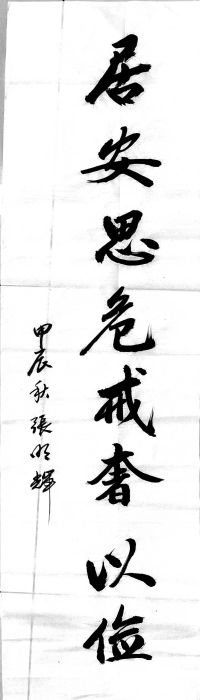 居安思危戒奢以俭
甲辰秋張明輝